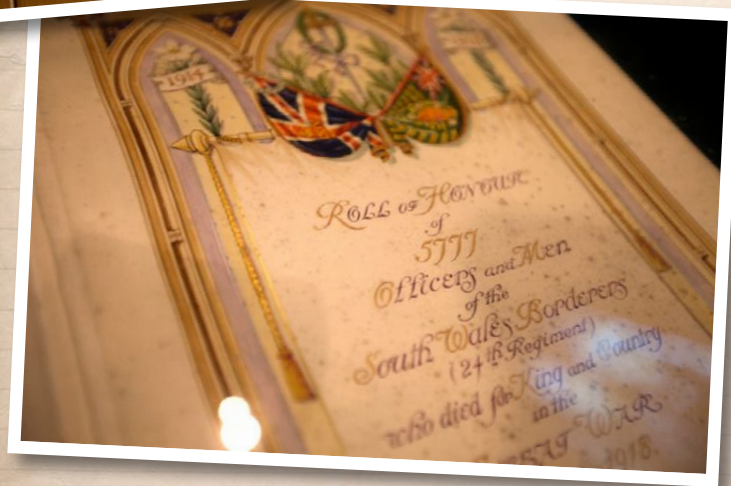 1914
Roll of Honour
of
5777
Officers and Men
of the
South Wales Borderers
(24th Regiment)
who died for King and Country
in the
Great War
1918.